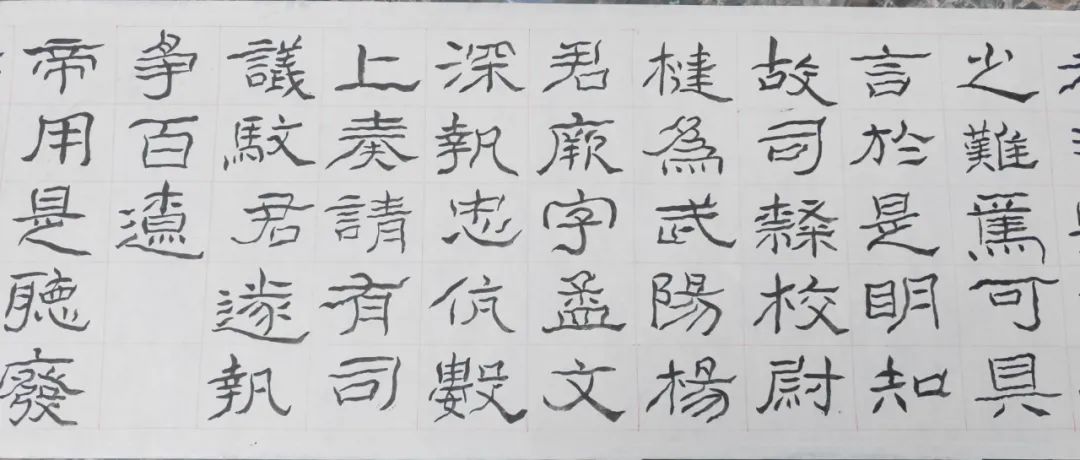 之難焉可具
言於是明知
故司隸校尉
楗爲武陽楊
君厥字孟文
深執忠伉數
上奏請有司
議駮君遂執
爭百遼
帝用是聽廢